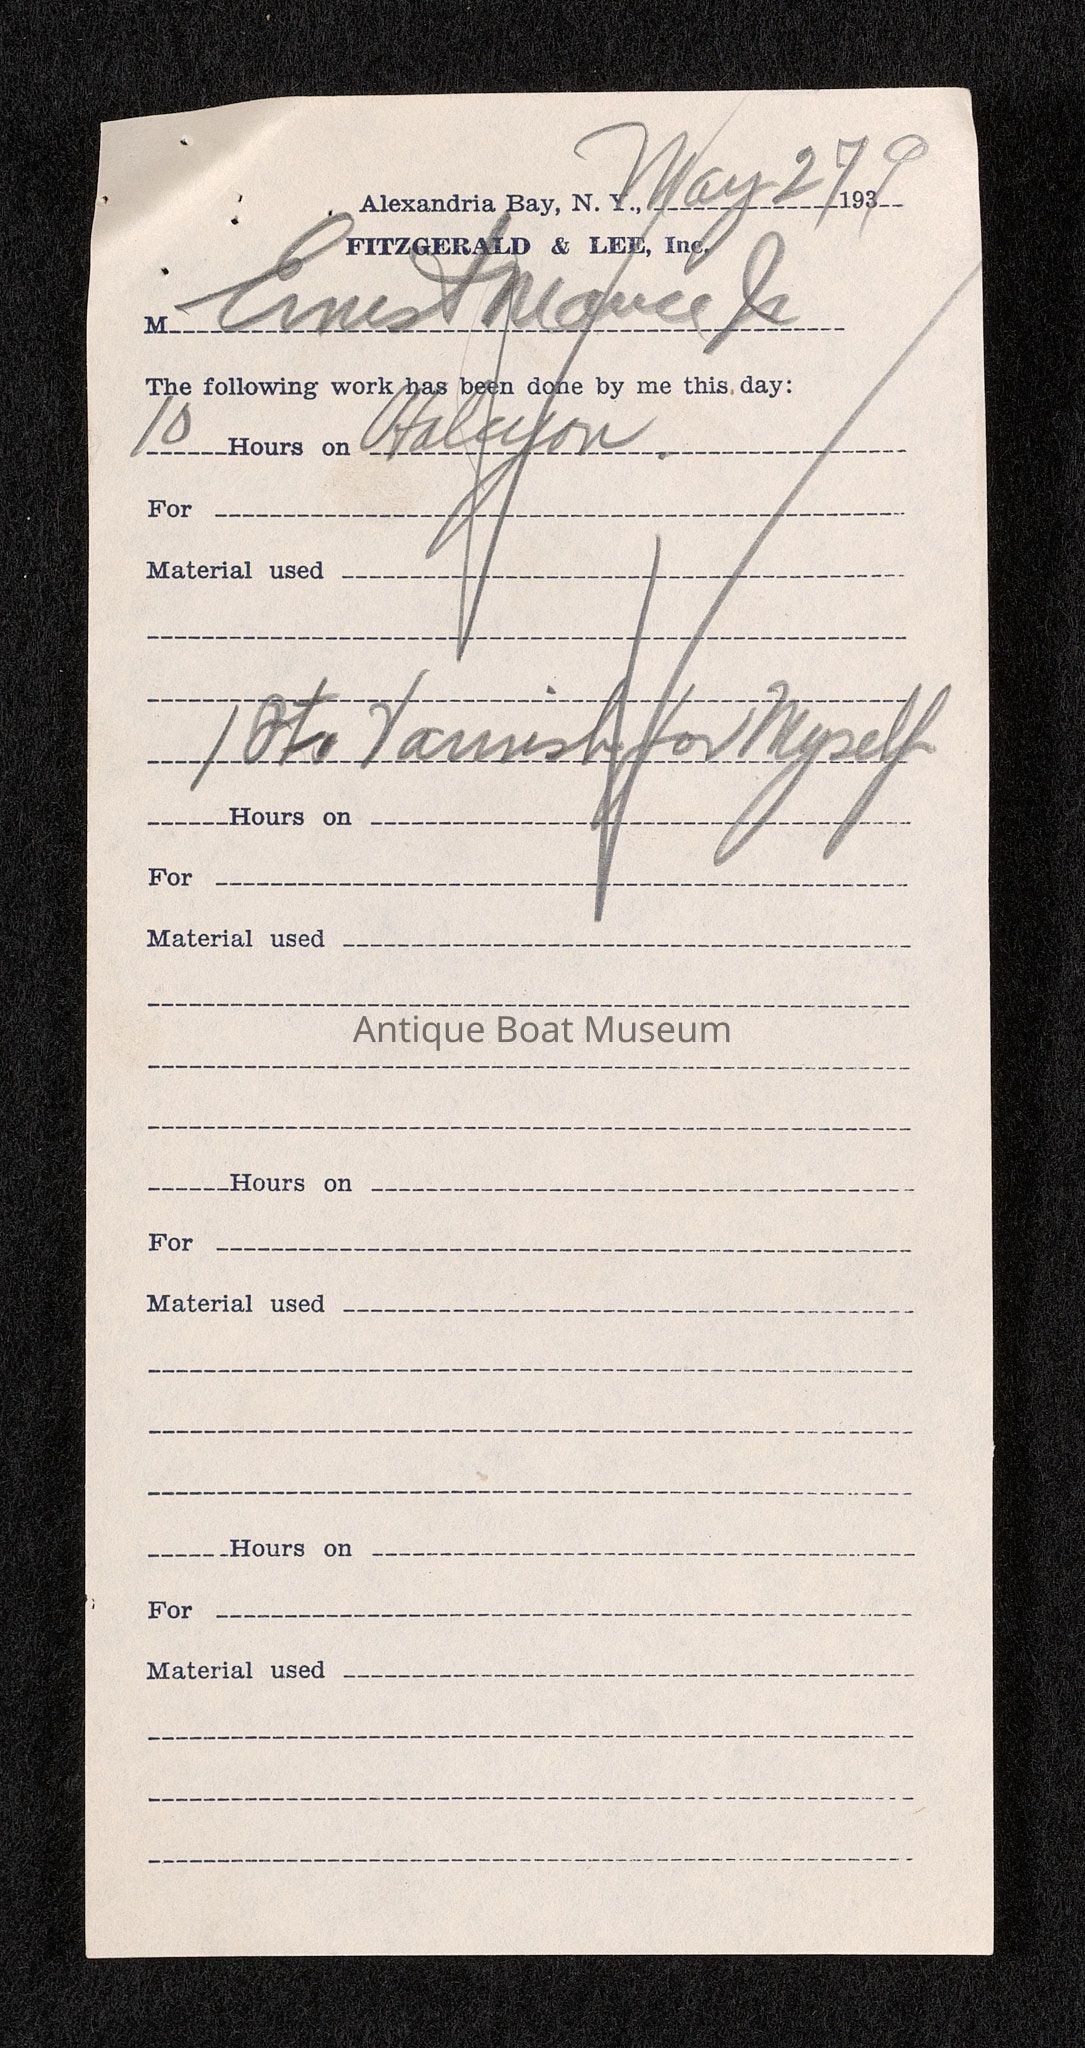 Alexandria Bay, N. Y., May 27 1939
FITZGERALD & LEE, Inc.
M Ernest Jr
The following work has been done by me this day:
10 Hours on Halcyon.
For
Material used
1 Qt. Varnish for Myself
Hours on
For
Material used
Antique Boat Museum
Hours on
For
Material used
Hours on
For
Material used